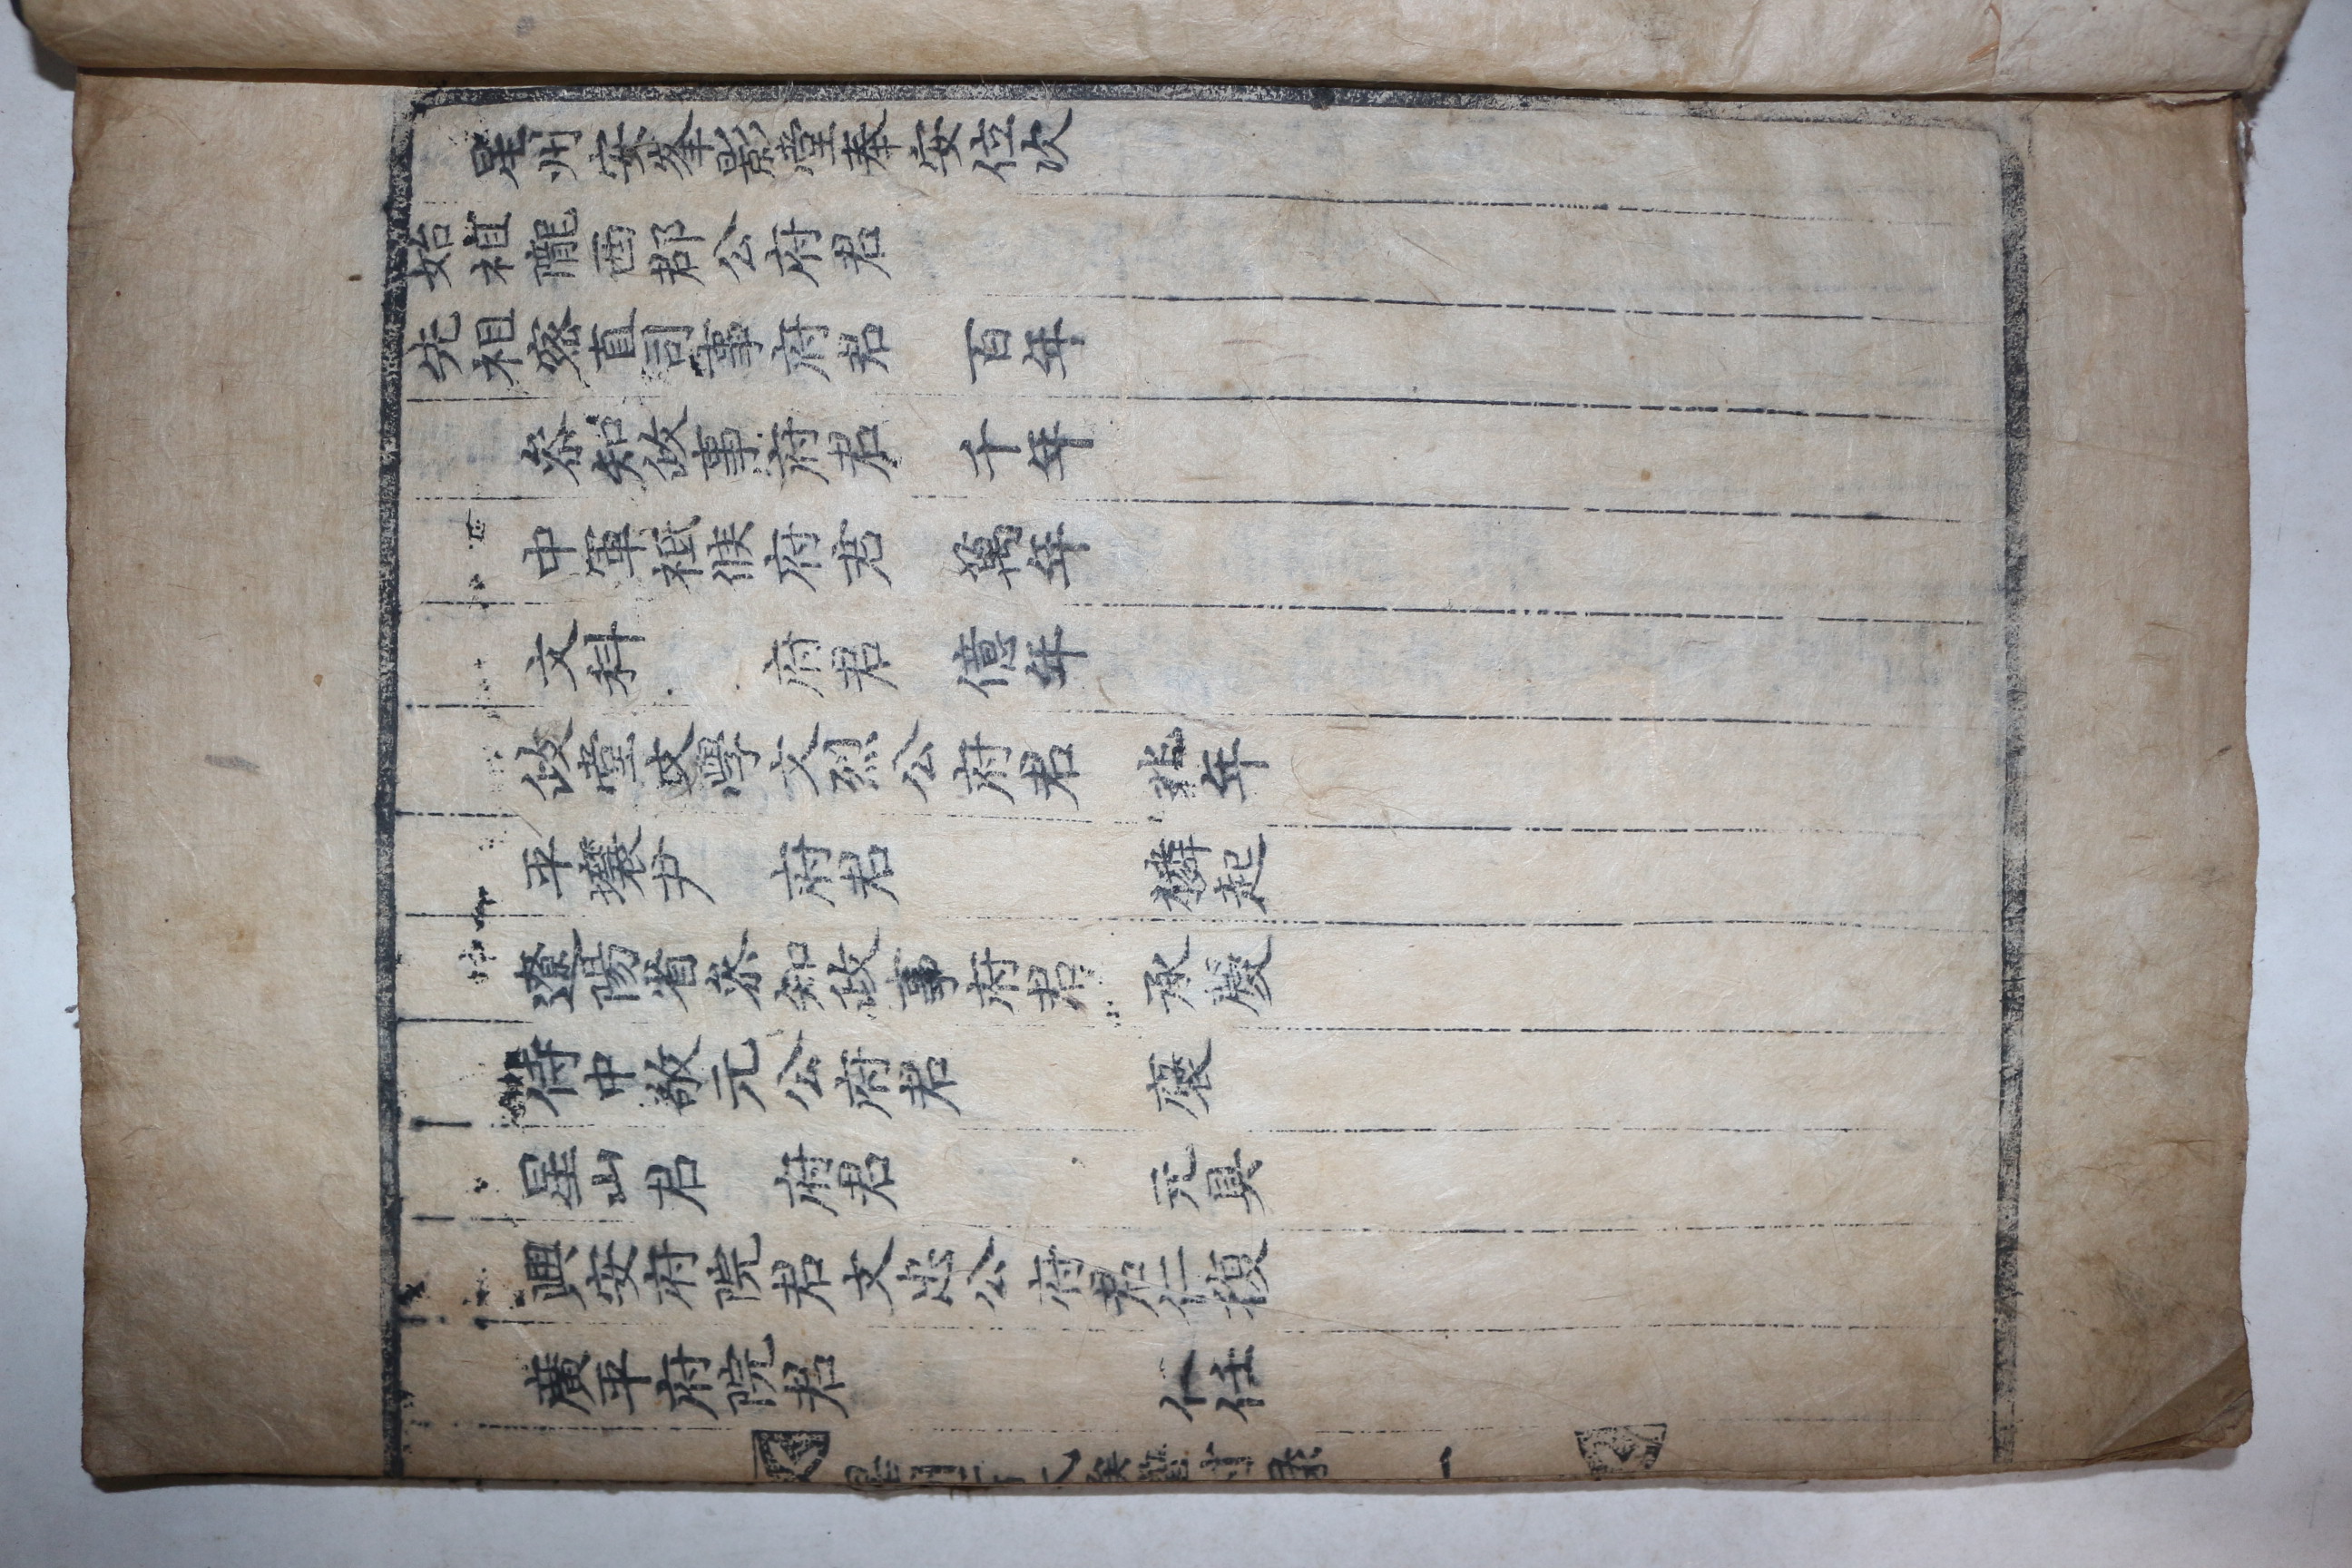 星州安峯影堂奉安位次
始祖隴西郡公府君
先祖密直司事府君 百年
叅知政事府君 千年
中軍祗候府君 萬年
文科 府君 億年
政堂文學文烈公府君 兆年
平壤尹 府君 麟起
遼陽省叅知政事府君 承慶
侍中敬元公府君 褒
星山君 府君 元具
興安府院君文忠公府君仁復
廣平府院君 仁任